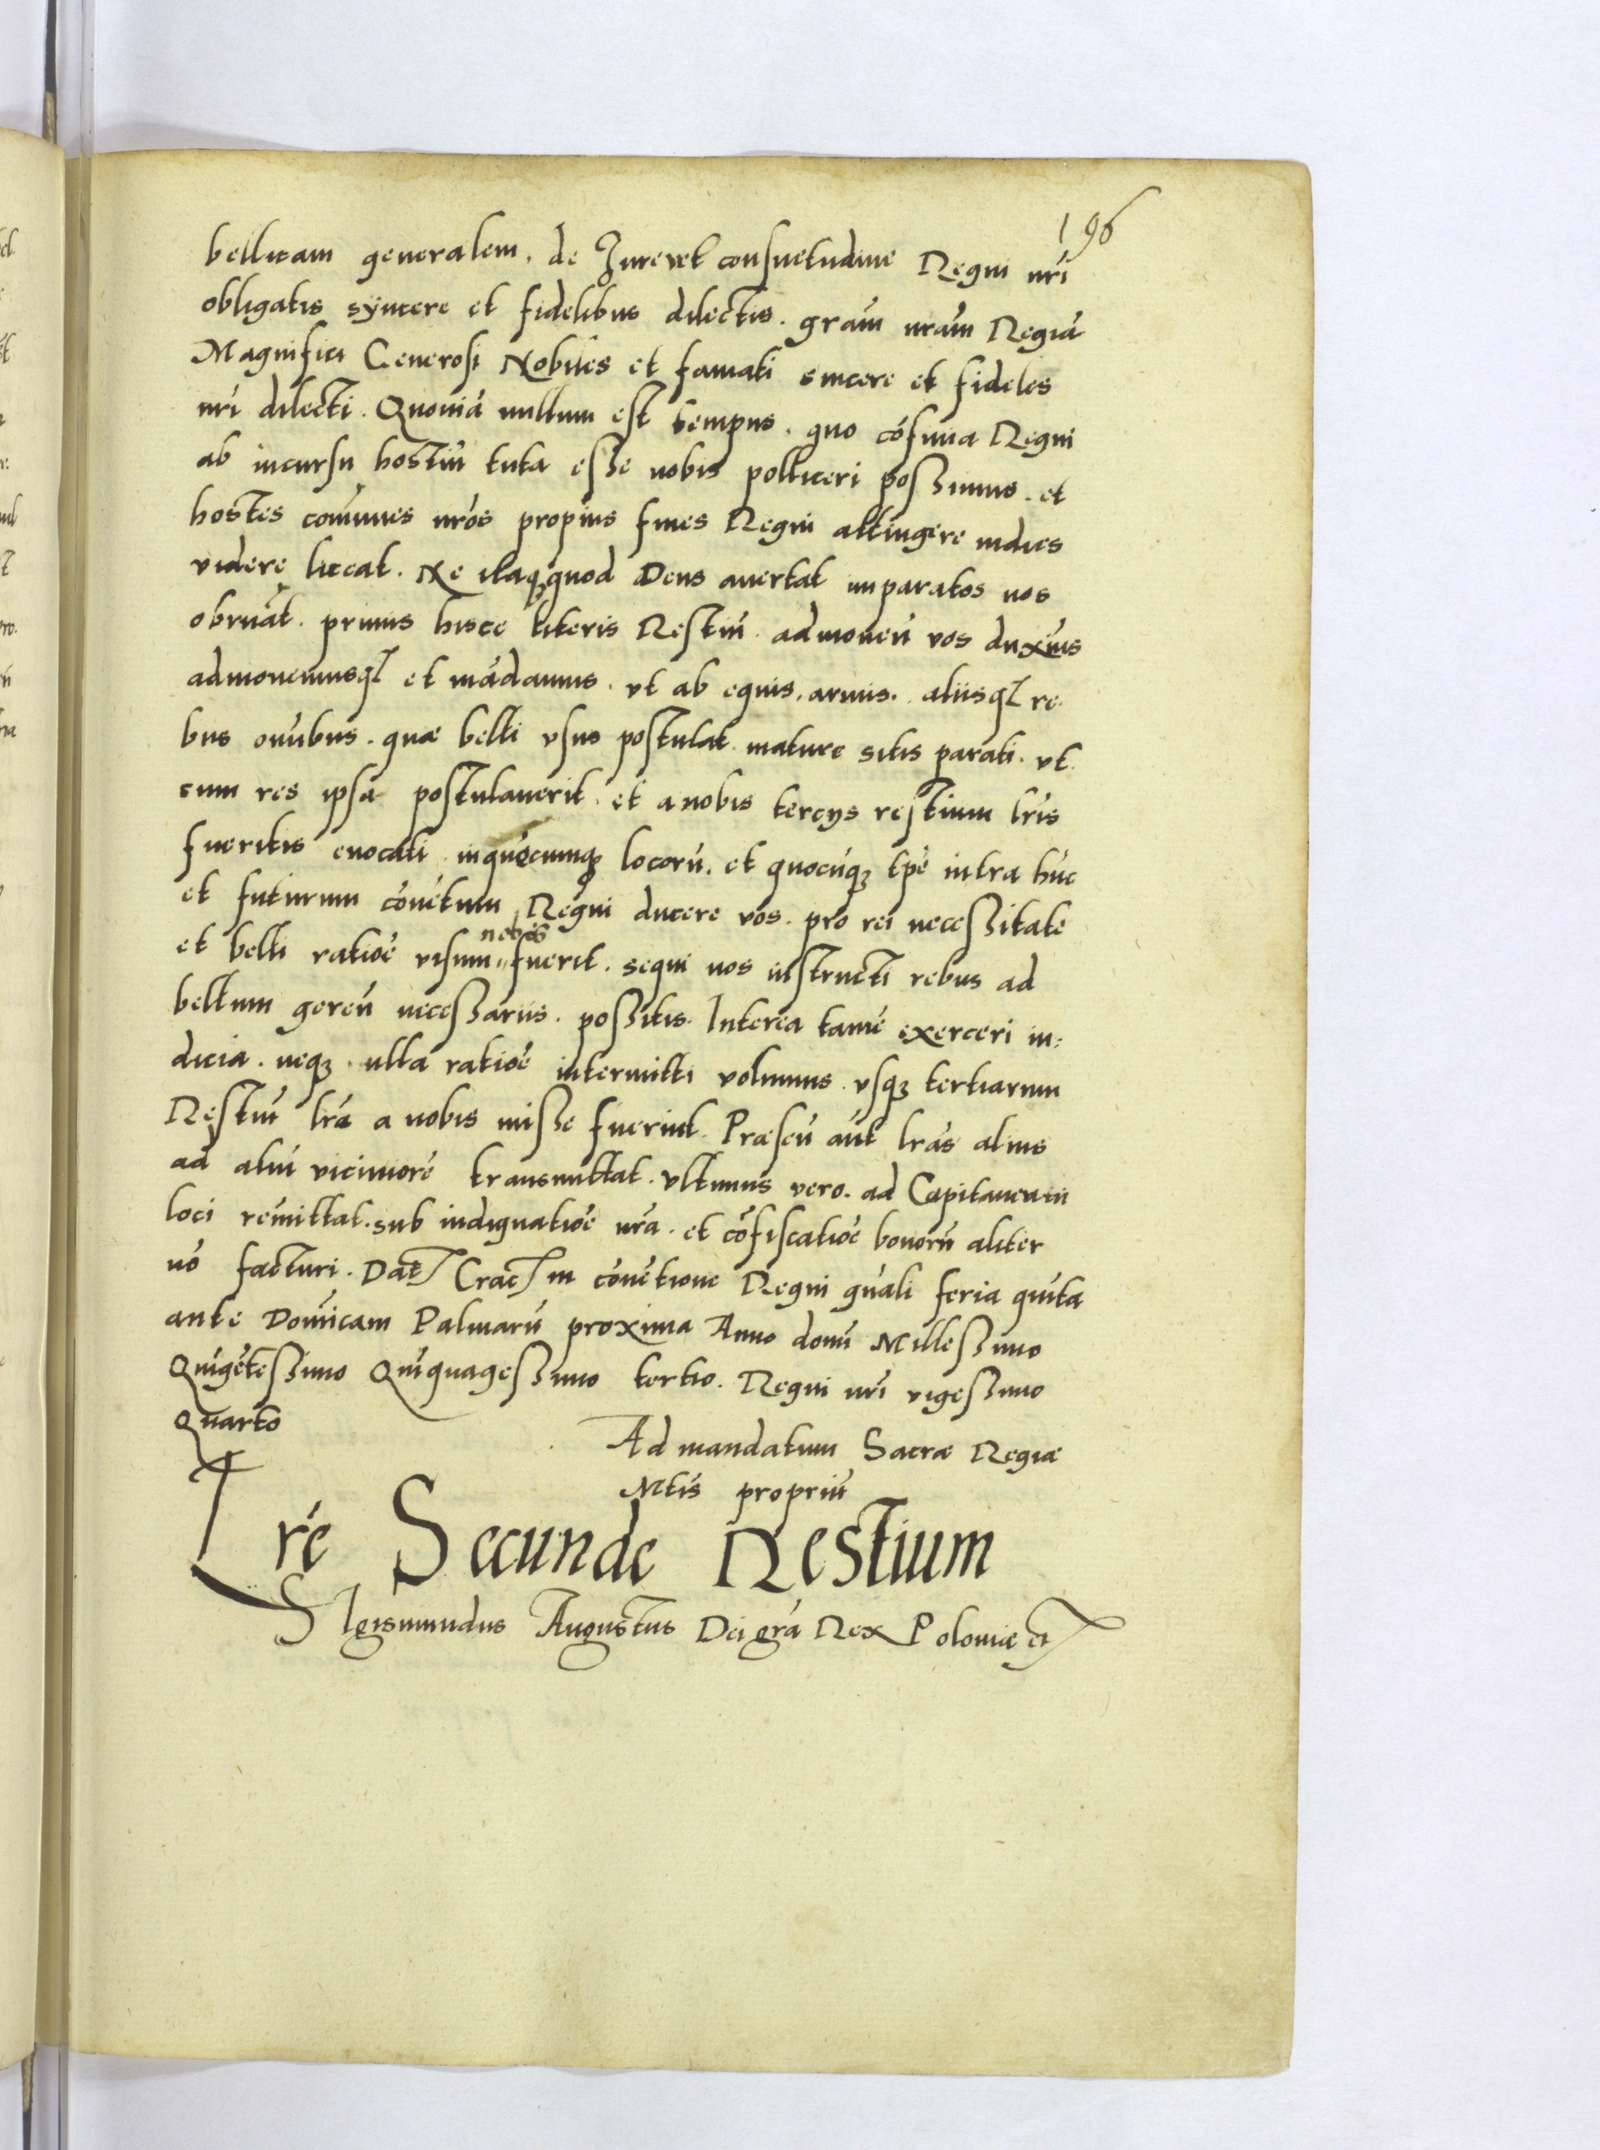 196
bellicam generalem. de Jure vel consuetudine Regni nrí
obligatis syncere et fidelibus dilectis. gram nram Regiā
Magnifici Generosi Nobiles et famati sincere et fideles
nrí dilecti. Quoniā nullum est tempus. quo cōfinia Regni
ab incursu hostiū tuta esse nobis polliceri possimus. et
hostes comunes nrōs propius fines Regni attingere indies
videre liceat. Ne itaq quod Deus avertat imparatos vos
obruāt. primis hisce literis Restiū. admonen̄ vos duximus
admonemusq et mādamus. vt ab equis. armis. aliisq re-
bus omibus. quæ belli vsus postulat mature sitis parati. vt
cum res ipsa postulaverit. et a nobis tercys restium lrīs
fueritis evocati inquēcumq locorū. et quocūq tpē intra hūc
et futurum cōvetum Regni ducere vos. pro rei necessitate
et belli ratiōe visum nobis fuerit. sequi nos instructi rebus ad
bellum geren̄ necessariis. possitis. Interea tamē exerceri iu=
dicia. neq. ulla ratiōe intermitti volumus. vsq tertiarum
Restiū lrā a nobis misse fuerint. Præsen̄ aūt lrās alius
ad aliū viciniorē transmittat. vltimus vero. ad Capitaneum
loci remittat. sub indignatiōe nrā. et cōfiscatiōe bonorū aliter
nō facturi. Dat Crac in cōvētione Regni gnāli feria quīta
ante Domīcam Palmarū proxima Anno domī Millessimo
Quīgētessimo Quīquagessimo tertio. Regni nrī vigessimo
Quarto
Ad mandatum Sacræ Regiæ
Mtis propriū
Lre Secunde Restium
Sigismundus Augustus Dei grā Rex Poloniæ et